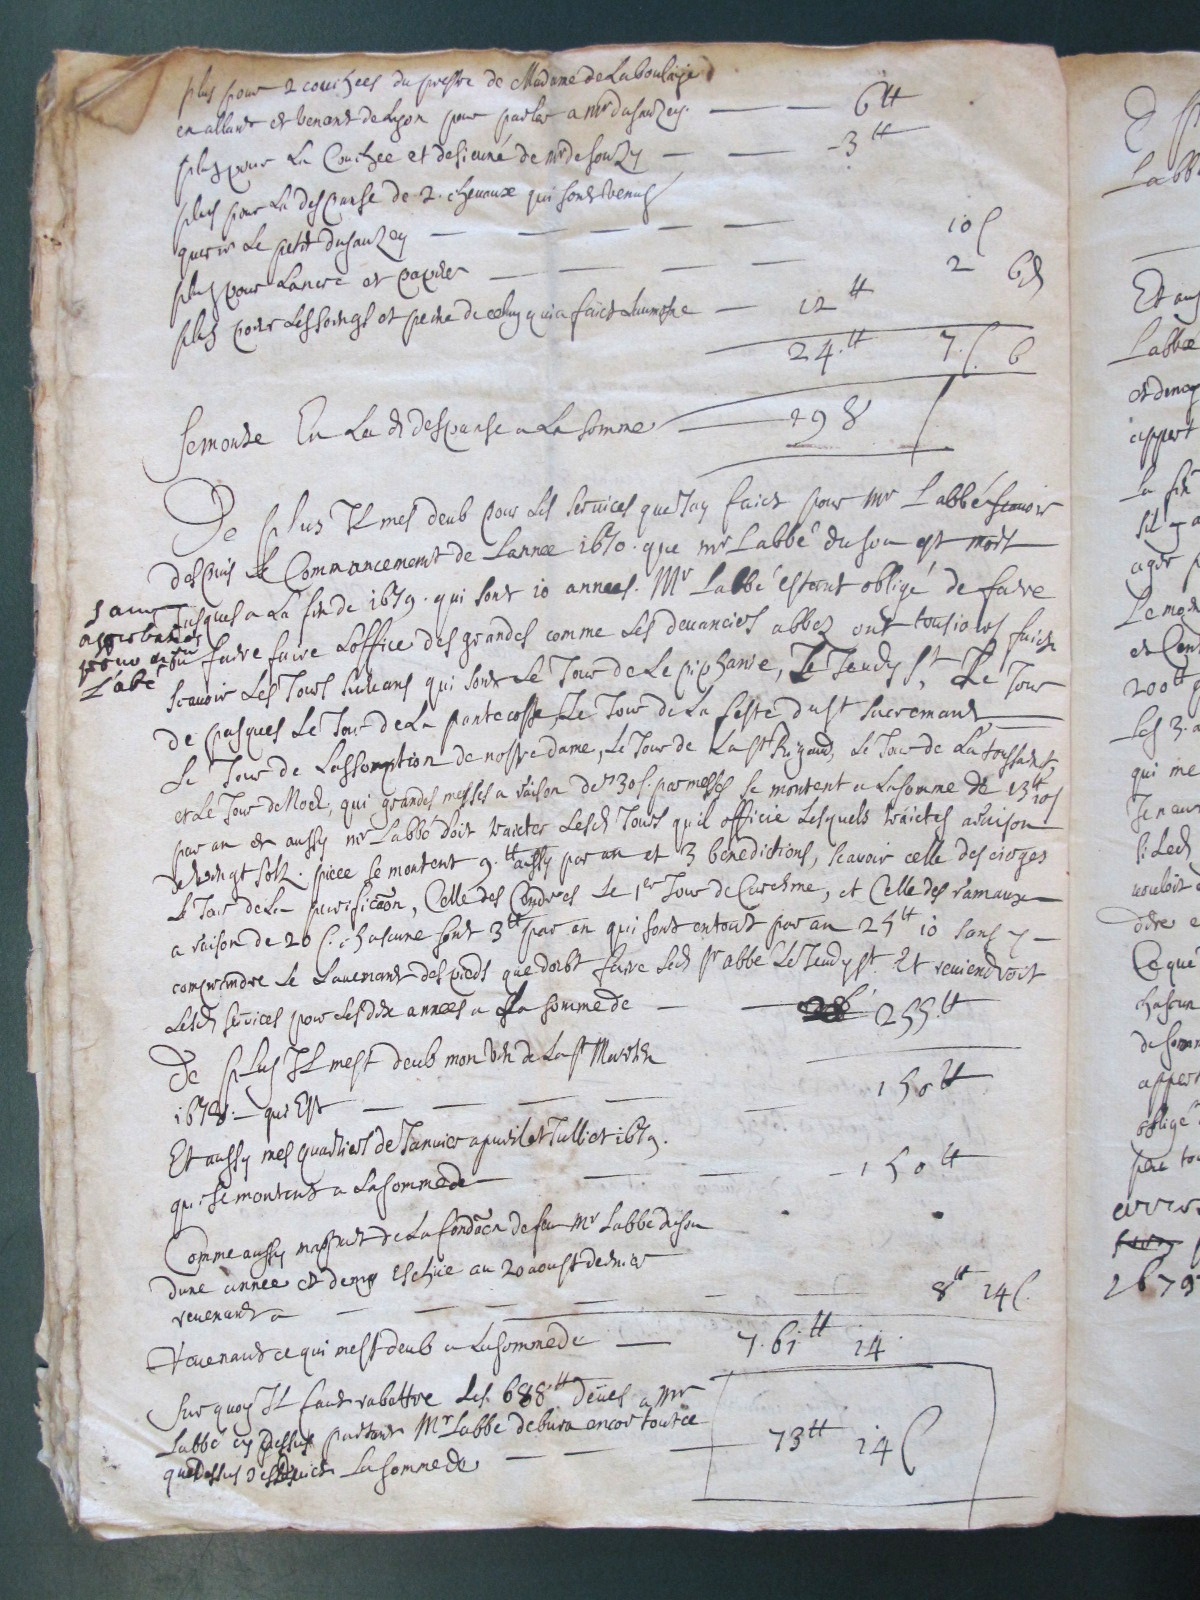 plus pour 2 couchees du prestre de Madame de Laboulaye
en allant et venant de Lyon pour parler a Mr dusauzey — — 6 tt
plus pour La Couchee et desieuné de Mr de souzy — — 3 tt
plus pour La despanse de 2 chevaux qui sont venus
querir Le petit dusauzey — — — — — 10 s
plus pour Lancre et papier — — — — 2 6 d
plus pour Les soings et peine de celuy qui a faict Laumosne — 12 tt
24 tt 7 s 6
se monte En La d despanse a La somme 298
De plus Il mest deub pour Les services que Jay faict pour Mr Labbé scavoir
despuis Le Commancement de Lannee 1670 que Mr Labbé duson est mort
Jusques a La fin de 1679 qui sont 10 annees. Mr Labbé estant obligé de faire
ou faire faire Loffice des grandes comme Les devanciers abbez ont tousiours faict
sans
pour
L'abé
scavoir Les Jours suivans qui sont Le Jour de Le piphanie, Le Jeudy st, Le Jour
de pasques Le Jour de La pantecoste, Le Jour de La feste du st sacremant
Le Jour de Lassomption de nostre dame, Le Jour de La st Rigaud, Le Jour de La toussaint,
et Le Jour de Noel, qui grandes messes a raison de 30 s. par messes se montent a La somme de 13 tt 10 s
par an et aussy Mr Labbé doit traicter Lesd Jours qu'il officie Lesquels traictes a raison
de vingt solz piece se montent 9 tt aussy par an et 3 benedictions, scavoir celle des cierges
Le Jour de La purification, Celle des Cendres Le 1er Jour de Caresme, et Celle des ramaux
a raison de 20 s. chascune sont 3 tt par an qui font en tout par an 25 tt 10 sans y
comprendre Le Lavemant des pieds que doibt faire Led sr abbé Le Jeudy st. Et reviendroit
Lesd services pour Les dix annees a La somme de — — 255 tt
De plus Il mest deub mon vin de La st Martin
1678 — qui Est — — — — — 150 tt
Et aussy mes quartiers de Janvier apvril et Julliet 1679.
qui se montent a La somme de — — — 150 tt
Comme aussy ma part de La fondaon de feu Mr Labbé duson
dune annee et demy Eschue au 20 aoust dernier
revenant a — — — — — — — 8 tt 14 s.
Revenant ce qui mest deub a La somme de — 761 tt 14
sur quoy Il faut rabattre Les 688 tt deues a Mr
Labbé cy dessus partant Mr Labbé debvra encor tout ce
que dessus desduict La somme de — — — 73 tt 14 s
E
Labbe
Et aus
Labbé
et
appert
La fin
sil y a
ager p
Le
et Cent
200 tt
Les 3
qui me
si Led
vouloit
dire e
Ce que
chascun
de som
appert
obligé
pere tou
1679